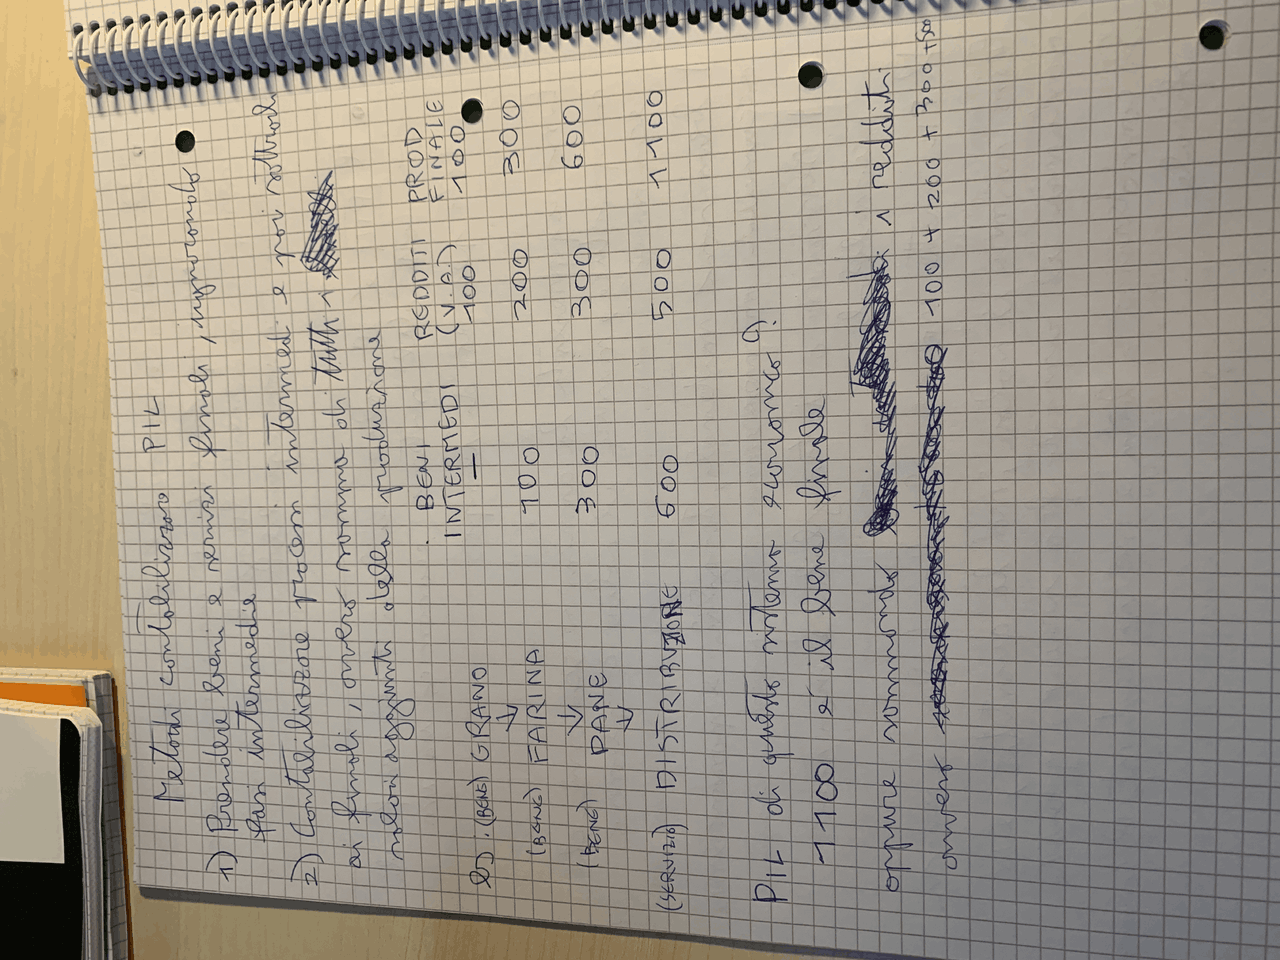 Metodi contabilizzare PIL
1) Prendere beni e servizi finali, ignorando
fasi intermedie
2) Contabilizzare processi intermedi e poi sottrarli
ai finali, ovvero somma di tutti i
valori aggiunti della produzione
BENI INTERMEDI REDDITI (V.A.) PROD FINALE
Es: (BENE) GRANO — 100 100
↓
(BENE) FARINA 100 200 300
↓
(BENE) PANE 300 300 600
↓
(SERVIZIO) DISTRIBUZIONE 600 500 1100
PIL di questo sistema economico?
1100 è il bene finale
oppure sommando i redditi
ovvero 100 + 200 + 300 + 500